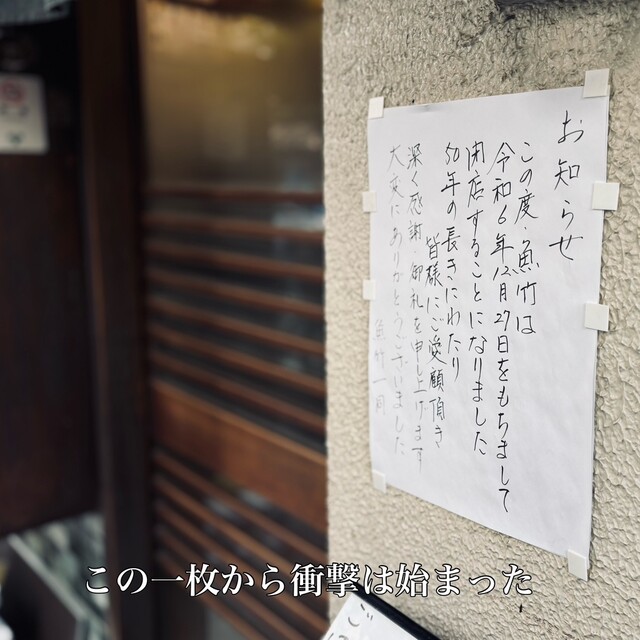 お知らせ
この度・魚竹は
令和6年12月27日をもちまして
閉店することになりました
50年の長きにわたり
皆様にご愛顧頂き
深く感謝・御礼を申し上げます
大変にありがとうございました
魚竹一同
この一枚から衝撃は始まった